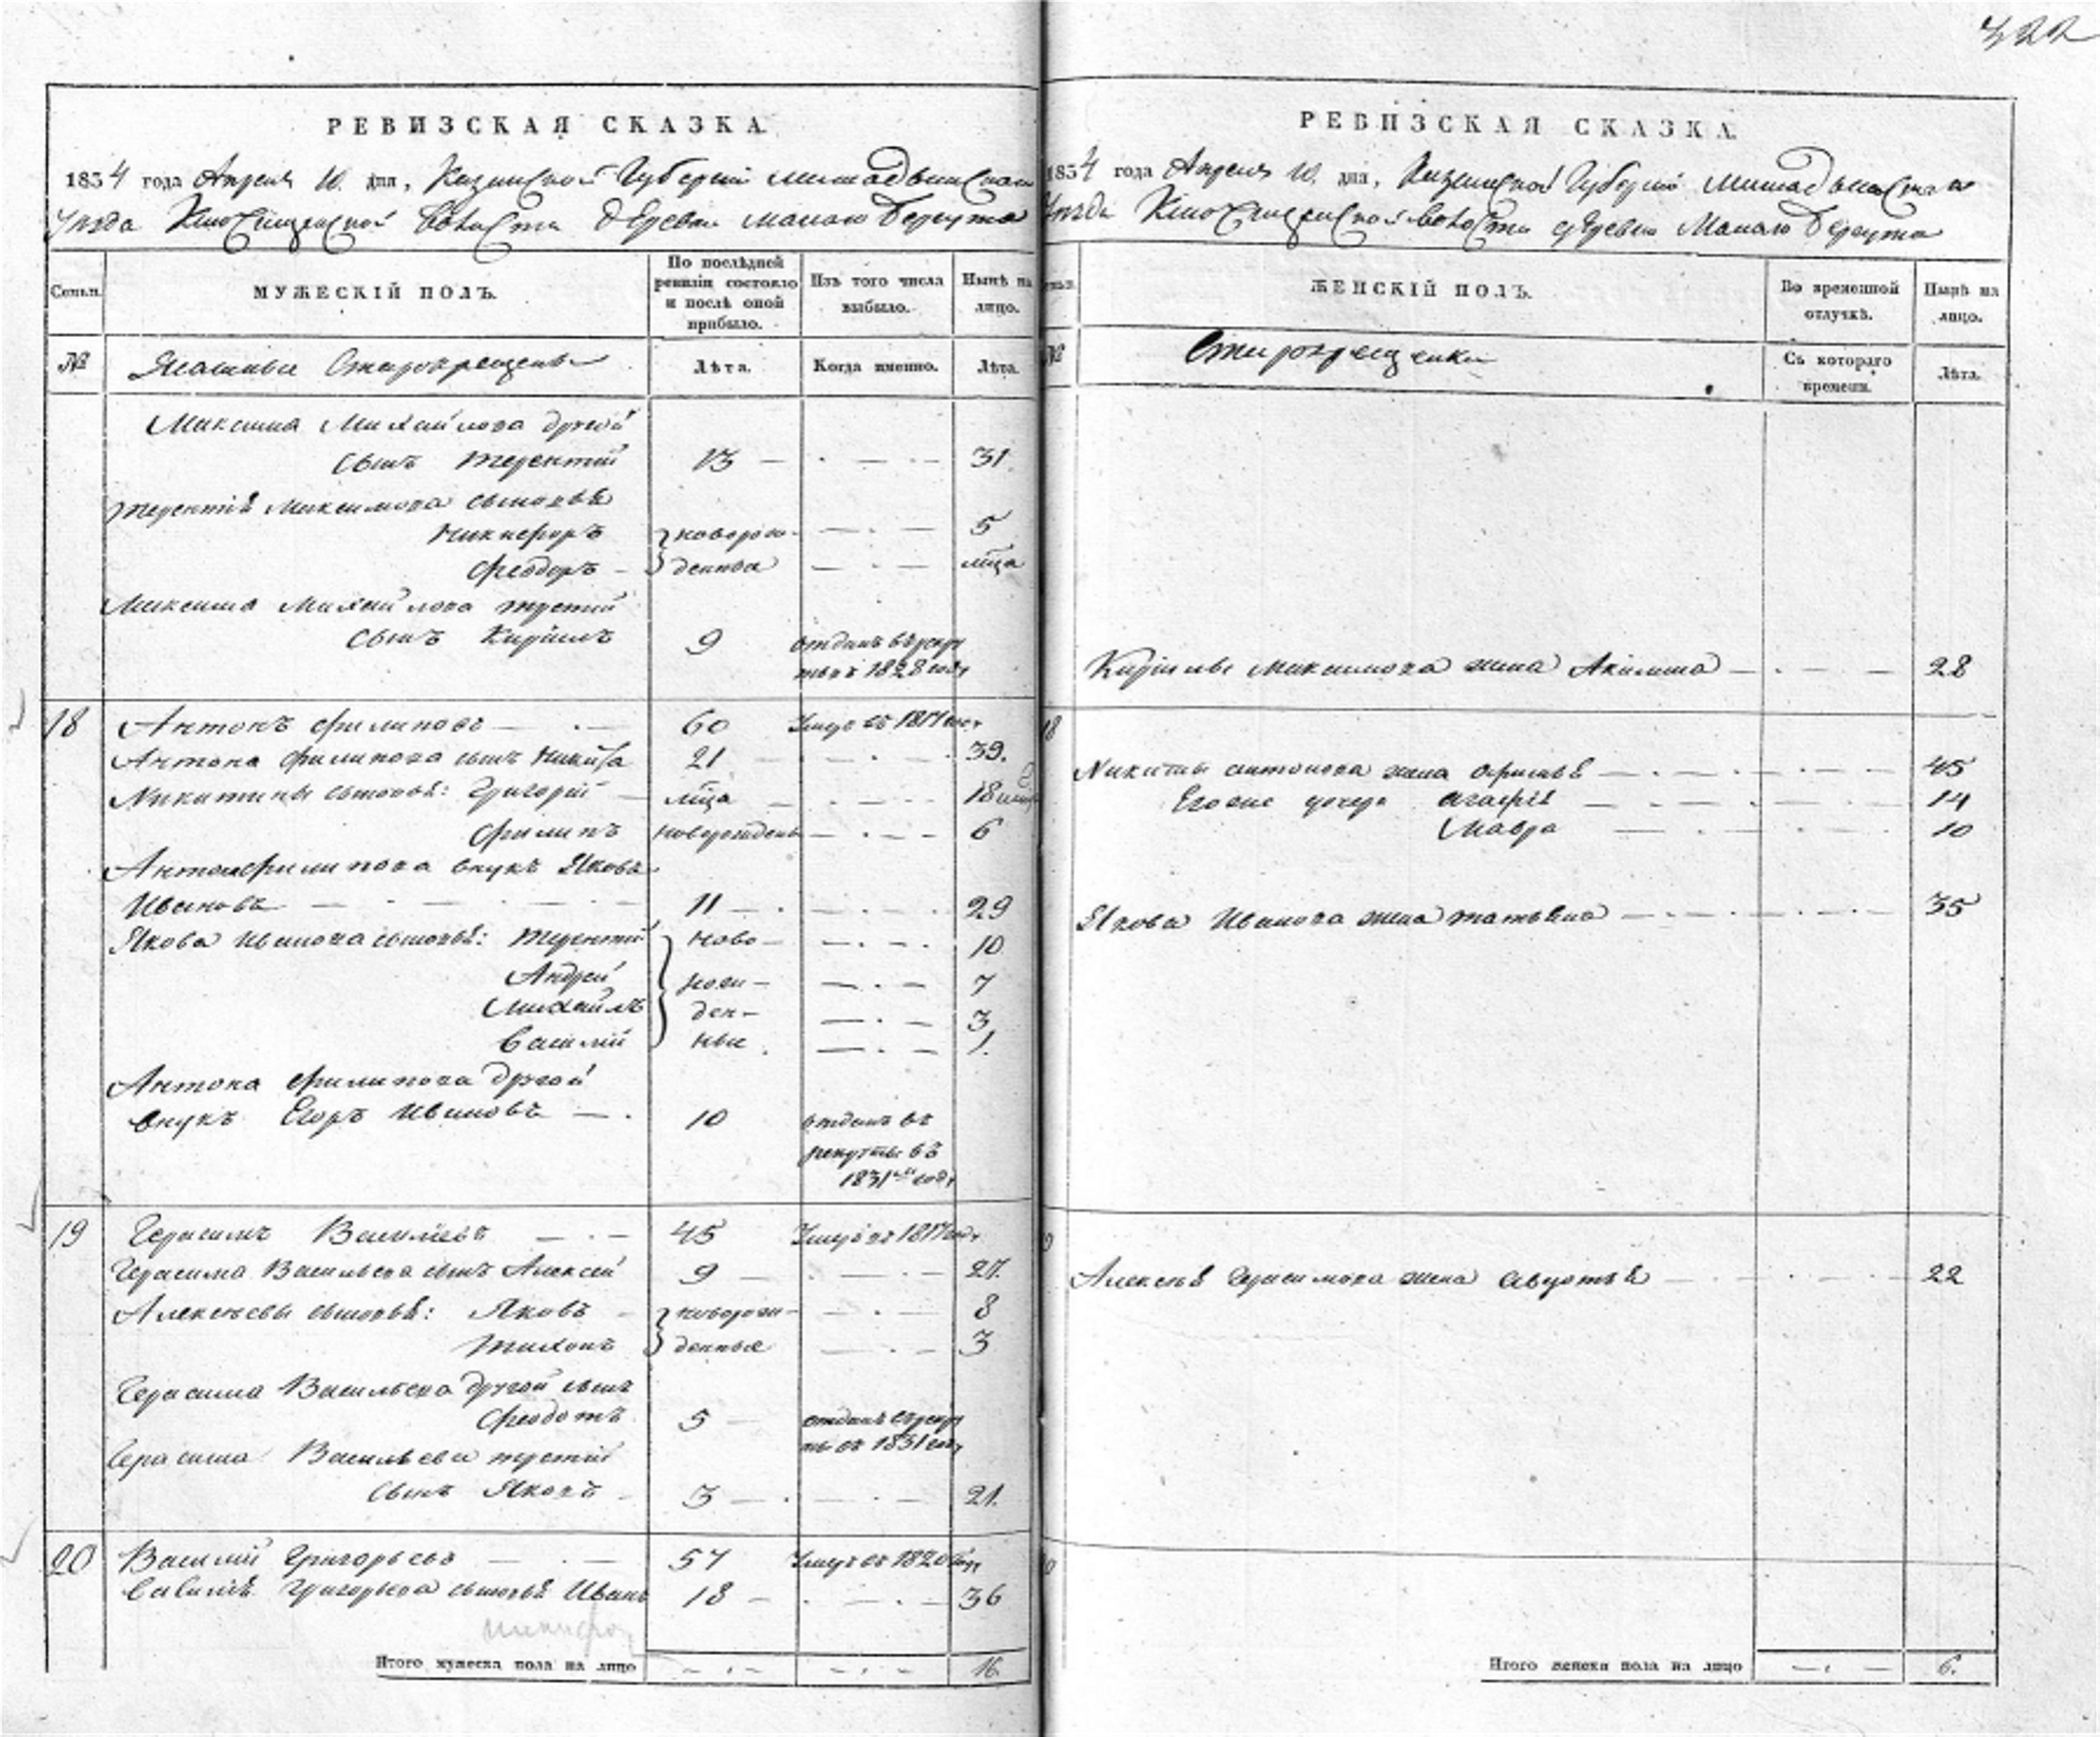 322
РЕВИЗСКАЯ СКАЗКА.
1834 года Апреля 10. дня, Казанской Губернии Мамадышской
Уезда Ключищенской волости деревни Малой
МУЖЕСКІЙ ПОЛЪ.
По послѣдней ревизіи состояло и послѣ оной прибыло.
Изъ того числа выбыло.
Нынѣ на лицо.
№
Ясашные Старокрещены
Лѣта.
Когда именно.
Лѣта.
Максима Михайлова другой
сынъ Терентій 13 31.
Терентія Максимова сыновья
Никифоръ новорож- 5
Феодоръ денныя мца
Максима Михайлова третій
сынъ Кирилъ 9 отданъ въ рекру
ты въ 1828 году
18 Антонъ Филиповъ 60 Умре въ 1817 году
Антона Филипова сынъ Никита 21 39.
Никитины сыновья: Григорій мца 18
Филипъ новорожденъ 6
Антона Филипова внукъ Яковъ
Ивановъ 11 29
Якова Иванова сыновья: Терентій ново- 10
Андрей рож- 7
Михаилъ ден- 3
Василій ные 1.
Антона Филипова другой
внукъ Егоръ Ивановъ 10 отданъ въ
рекруты въ
1831 году
19 Герасимъ Васильевъ 45 Умре въ 1817 году
Герасима Васильева сынъ Алексей 9 27.
Алексеевы сыновья: Яковъ новорож- 8
Тихонъ денныя 3
Герасима Васильева другой сынъ
Феодотъ 5 отданъ въ рекру
ты въ 1831 году
Герасима Васильева третій
сынъ Яковъ 3 21.
20 Василій Григорьевъ 57 Умре въ 1820 году
Василія Григорьева сыновья Иванъ 18 36
Итого мужеска пола на лицо 16.
РЕВИЗСКАЯ СКАЗКА.
1834 года Апреля 10. дня, Казанской Губернии Мамадышскаго
Уезда Ключищенской волости деревни Малой
ЖЕНСКІЙ ПОЛЪ.
Во временной отлучкѣ.
Нынѣ на лицо.
№
Старокрещенки
Съ котораго времени.
Лѣта.
Кирилы Максимова жена Акилина 28
18
Никиты Антонова жена Офимья 45
Егоже дочери Агафія 14
Мавра 10
Якова Иванова жена Татьяна 35
Алексея Герасимова жена Авдотья 22
Итого женска пола на лицо 6.